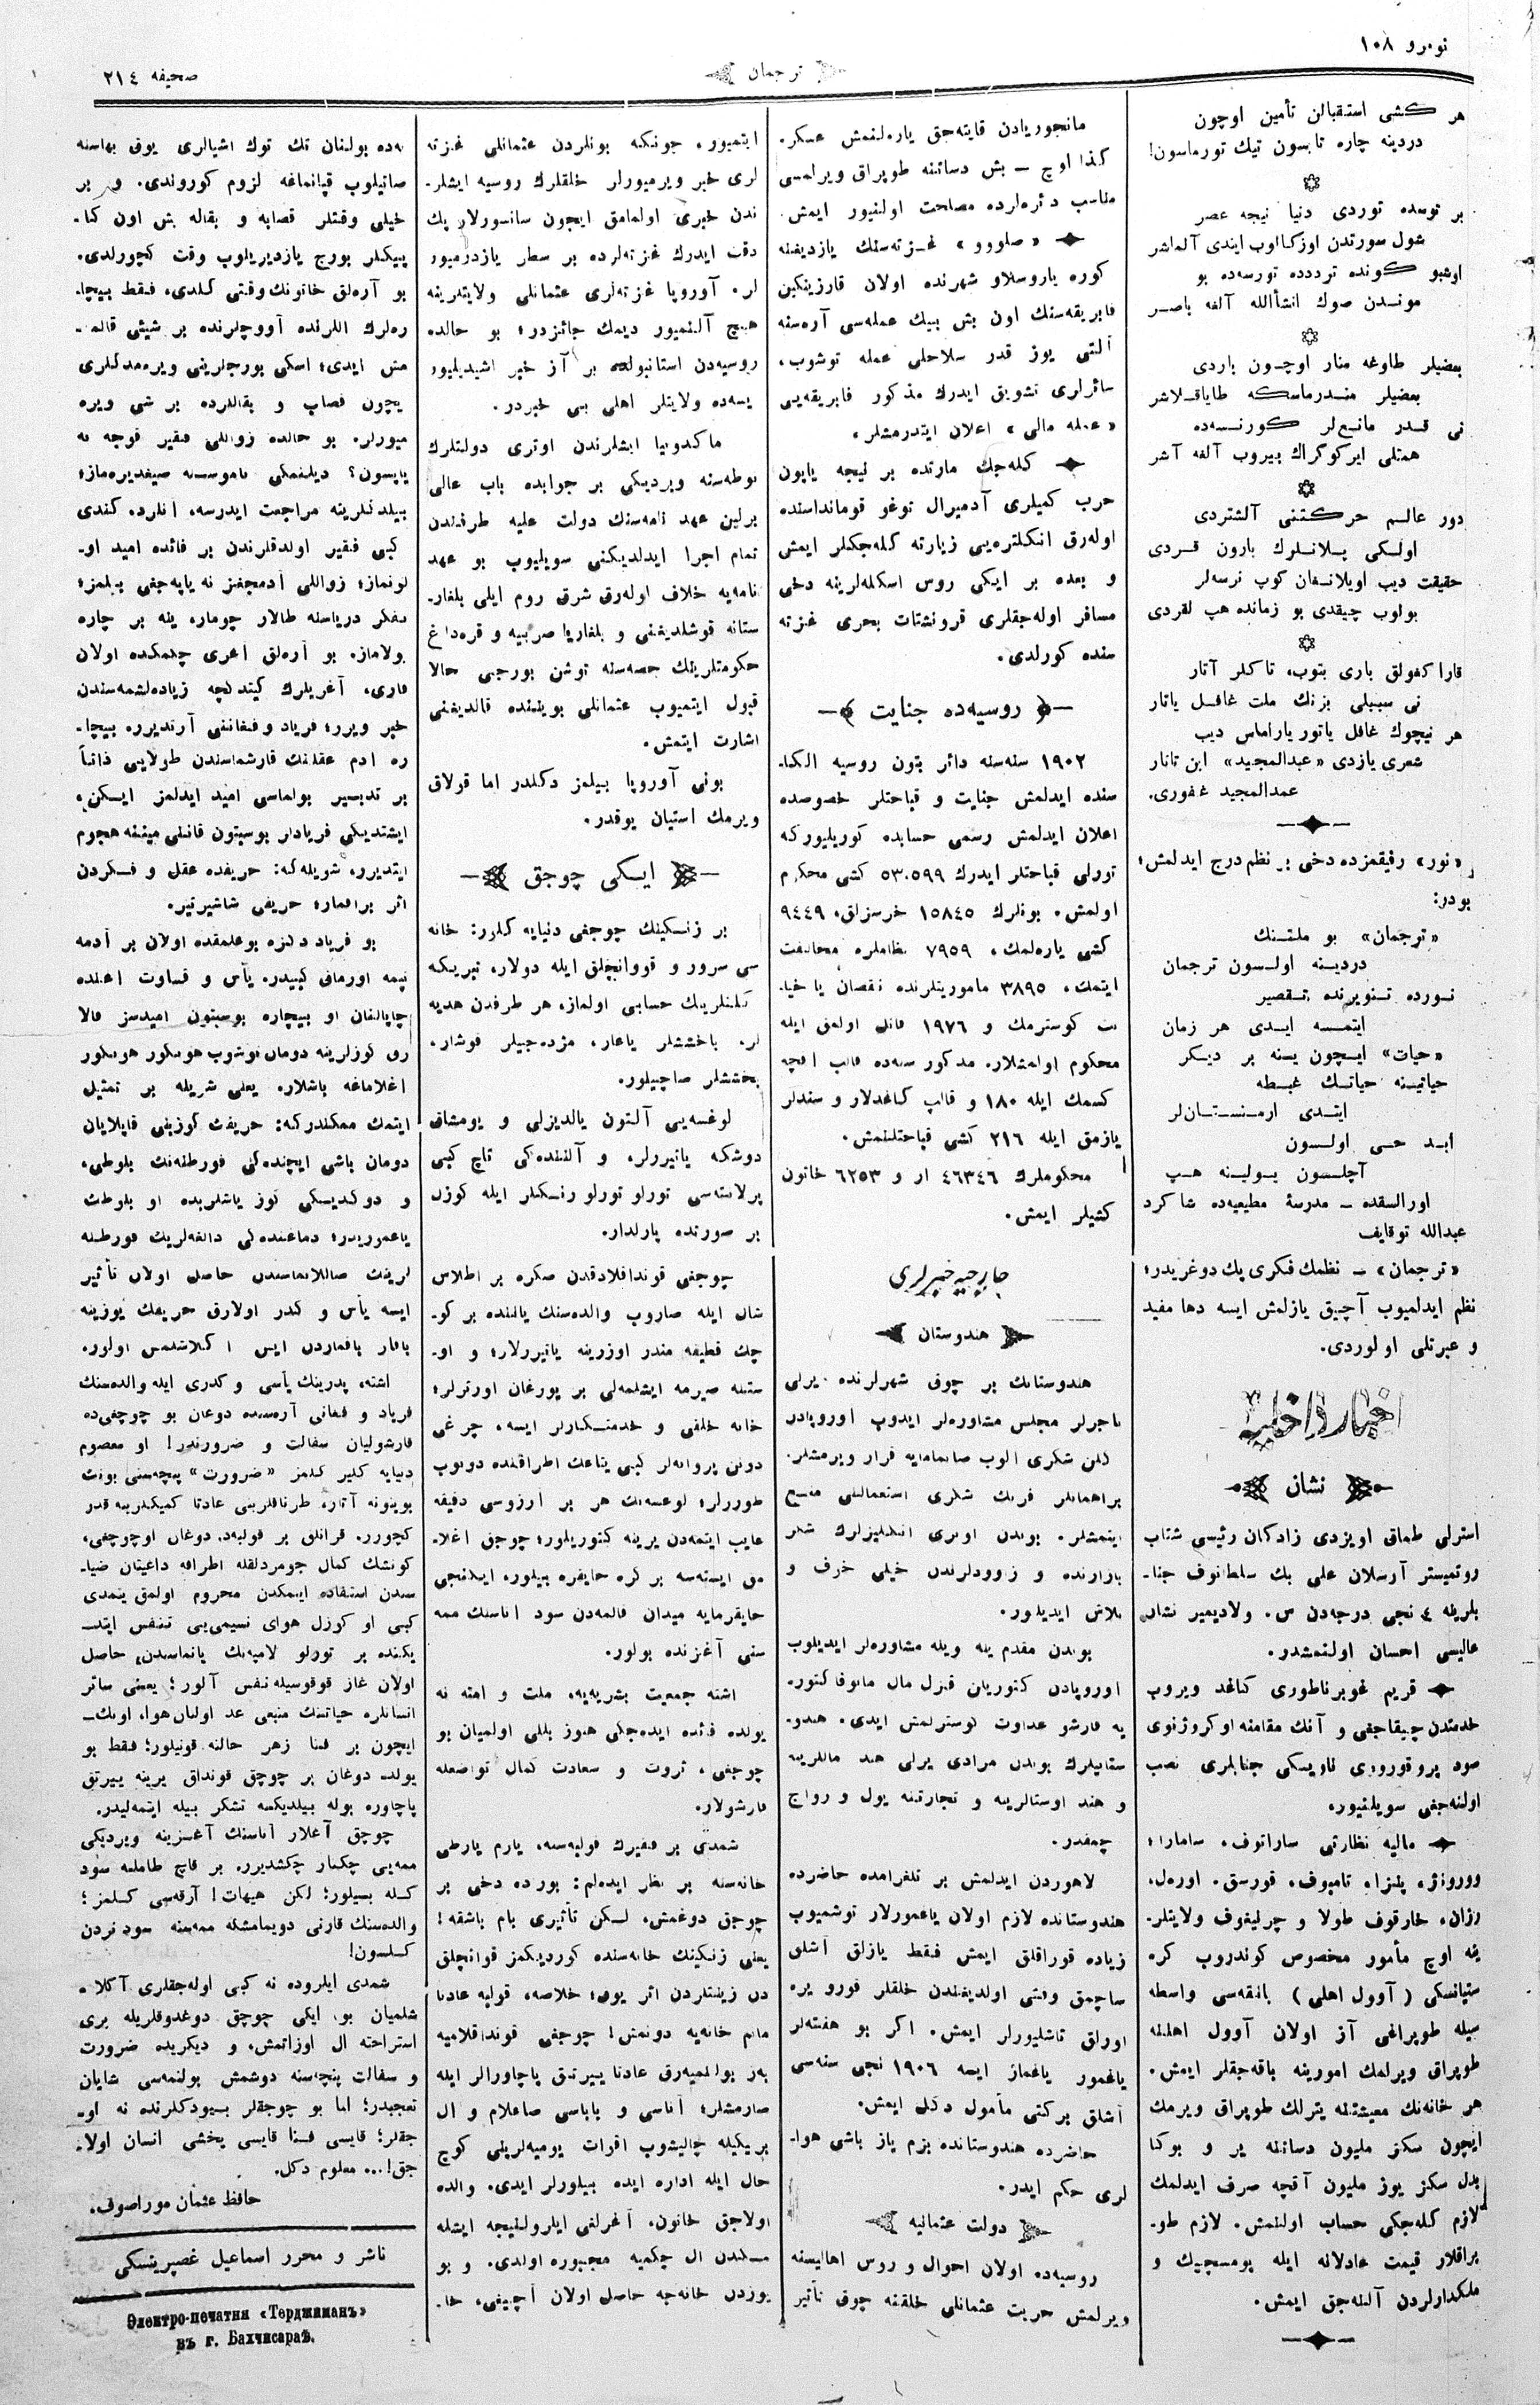 نومرو ١٠٨
ترجمان
صحيفه ٢١٤
هر كشى استقبالن تأمين اوچون
دردينه چاره تابسون تيك تورماسون!
بر توسده توردى دنيا نيجه عصر
شول سورتدن اوزكااوب ايندى آلماشر
اوشبو كونده ترددده تورسه‌ده بو
موندن صوك انشأالله آلغه باصر
بعضيلر طاوغه منار اوچون باردى
بعضيلر مندرماسكه طاياقلاشر
نى قدر مانع‌لر كورنسه‌ده
همتلى ايركوكراك بيروب آلغه آشر
دور عالم حركتنى آلشتردى
اولكى پلانلرك بارون قردى
حقيقت ديب اويلانغان كوپ نرسه‌لر
بولوب چيقدى بو زمانده هپ لقردى
قارا كغولق بارى بتوب، تاكلر آتار
نى سببلى بزنك ملت غافل ياتار
هر نيچوك غافل ياتور ياراماس ديب
شعرى يازدى «عبدالمجيد» ابن تاتار
عبدالمجيد غفورى.
«نور» رفيقمزده دخى بر نظم درج ايدلمش؛
بودر:
«ترجمان» بو ملتنك
دردينه اولسون ترجمان
نورده تنويرنده تقصير
ايتمسه ايدى هر زمان
«حيات» ايچون يسنه بر ديكر
حياتينه حياتك غبطه
ايتدى ارمنستان‌لر
ابد حى اولسون
آچلسون يولينه هپ
اورالسقده ــ مدرسهٔ مطيعيه‌ده شاكرد
عبدالله توقايف
«ترجمان» ــ نظمك فكرى پك دوغريدر؛
نظم ايدلميوب آچيق يازلمش ايسه دها مفيد
و عبرتلى اولوردى.
اخبار داخليه
نشان
استرلى طماق اويزدى زادكان رئيسى شتاب
روتميستر آرسلان على بك سلطانوف جنا-
بلرينه ٤ نجى درجه‌دن س. ولاديمير نشان
عاليسى احسان اولنمشدر.
قريم غوبرناطورى كاغد ويروب
خدمتدن چيقاجغى و آنك مقامنه اوكروژنوى
صود پروقورورى لاويسكى جنابلرى نصب
اولنه‌جغى سويلنيور.
ماليه نظارتى ساراتوف، سامارا،
وورونژ، پنزا، تامبوف، قورسق، اورەل،
رزان، خارقوف طولا و چرنيغوف ولايتلر-
ينه اوچ مأمور مخصوص كوندروب كره
ستيانسكى (آوول اهلى) بانقه‌سى واسطه
سيله طوپراغى آز اولان آوول اهلينه
طوپراق ويرلمك امورينه باقه‌جقلر ايمش.
هر خانه‌نك معيشتنه يترلك طوپراق ويرمك
ايچون سكز مليون دساتنه ير و بوكا
بدل سكز يوز مليون آقچه صرف ايدلمك
لازم كله‌جكى حساب اولنمش. لازم طو-
پراقلار قيمت عادلانه ايله پومسچيك و
ملكدارلردن آلنه‌جق ايمش.
مانجوريادن قايته‌جق ياره‌لنمش عسكر-
كذا اوچ ــ بش دساتنه طوپراق ويرلمسى
مناسب دئره‌لرده مصلحت اولنيور ايمش.
«صلووو» غزته‌سنك يازديغنه
كوره ياروسلاو شهرنده اولان قارزينكين
فابريقه‌سنك اون بش بيك عمله‌سى آره‌سنه
آلتى يوز قدر سلاحلى عمله توشوب،
سائرلرى تشويق ايدرك مذكور فابريقه‌يى
«عمله مالى» اعلان ايتدرمشلر.
كله‌جك مارتده بر نيجه ياپون
حرب كميلرى آدميرال توغو قومانداسنده
اوله‌رق انكلتره‌يى زيارته كله‌جكلر ايمش
و بعده بر ايكى روس اسكله‌لرينه دخى
مسافر اوله‌جقلرى قرونشتات بحرى غزته
سنده كورلدى.
روسيه‌ده جنايت
١٩٠٢ سنه‌سنه دائر بتون روسيه الكا-
سنده ايدلمش جنايت و قباحتلر خصوصده
اعلان ايدلمش رسمى حسابده كوريليوركه
تورلى قباحتلر ايدرك ٥٣،٥٩٩ كشى محكوم
اولمش. بونلرك ١٥٨٤٥ خرسزلق، ٩٤٤٩
كشى ياره‌لمك، ٧٩٥٩ نظاملره مخالفت
ايتمك، ٣٨٩٥ ماموريتلرنده نقصان يا خيا-
نت كوسترمك و ١٩٧٦ قاتل اولمق ايله
محكوم اولمشلار. مذكور سنه‌ده قالب اقچه
كسمك ايله ١٨٠ و قالپ كاغدلار و سندلر
يازمق ايله ٢١٦ كشى قباحتلنمش.
محكوملرك ٤٦٣٤٦ ار و ٦٢٥٣ خاتون
كشيلر ايمش.
خارجيه خبرلرى
هندوستان
هندوستانك بر چوق شهرلرنده يرلى
تاجرلر مجلس مشاوره‌لر ايدوپ اوروپادن
كلن شكرى الوب صاتمامايه قرار ويرمشلر.
براهمانلر فرنك شكرى استعمالنى منع
ايتمشلر. بوندن اوترى انكليزلرك شكر
بازارنده و زاوودلرندن خيلى خوف و
تلاش ايديلور.
بوندن مقدم ينه ويله مشاوره‌لر ايديلوب
اوروپادن كتوريان قزل مال مانوفاكتور-
يه قارشو عداوت كوسترلمش ايدى. هندو-
ستانيلرك بوندن مرادى يرلى هند ماللرينه
و هند اوستالرينه و تجارتينه يول و رواج
چمقدر.
لاهوردن ايدلمش بر تلغرامده حاضرده
هندوستانده لازم اولان ياغمورلار توشميوب
زياده قوراقلق ايمش فقط يازلق آشلق
ساچمق وقتى اولديغندن خلقلر قورو يره
اورلق تاشليورلر ايمش. اكر بو هفته‌لر
ياغمور ياغماز ايسه ١٩٠٦ نجى سنه‌سى
آشلق بركتى مأمول دكل ايمش.
حاضرده هندوستانده بزم ياز باشى هوا-
لرى حكم ايدر.
دولت عثمانيه
روسيه‌ده اولان احوال و روس اهاليسنه
ويرلمش حريت عثمانلى خلقنه چوق تأثير
ايتميور. چونكه بونلردن عثمانلى غزته
لرى خبر ويرميورلر خلقلرك روسيه ايشلر-
ندن خبرى اولمامق ايچون سانسورلار پك
دقت ايدرك غزته‌لرده بر سطر يازدرميور
لر. آوروپا غزته‌لرى عثمانلى ولايتلرينه
هيچ آلنميور ديمك جائزدر؛ بو حالده
روسيه‌دن استانبولده بر آز خبر اشيديليور
يسه‌ده ولايتلر اهلى بى خبردر.
ماكدونيا ايشلرندن اوترى دولتلرك
نوطه‌سنه ويرديكى بر جوابده باب عالى
برلين عهد نامه‌سنك دولت عليه طرفندن
تمام اجرا ايدلديكنى سويليوب بو عهد
نامه‌يه خلاف اوله‌رق شرق روم ايلى بلغار-
ستانه قوشلديغنى و بلغاريا صربيه و قره‌داغ
حكومتلرينك حصه‌سنه توشن بورجى حالا
قبول ايتميوب عثمانلى بويننده قالديغنى
اشارت ايتمش.
بونى آوروپا بيلمز دكلدر اما قولاق
ويرمك استيان يوقدر.
ايكى چوجق
بر زنكينك چوجغى دنيايه كلور: خانه
سى سرور و قووانچلق ايله دولار، تبريكه
كلنلرينك حسابى اولماز، هر طرفدن هديه
لر، باخششلر ياغار، مژده‌جيلر قوشار،
بخششلر صاچيلور.
لوغسه‌يى آلتون يالديزلى و يومشاق
دوشكه ياتيررلر، و آلننده‌كى تاج كبى
پرلانته‌سى تورلو تورلو رنكلر ايله كوزل
بر صورتده پارلدار.
چوجغى قوندافلادقدن صكره بر اطلاس
شال ايله صاروب والده‌سنك يالننده بر كو-
چك قطيفه مندر اوزرينه ياتيررلار؛ و او-
ستنه صيرمه ايشلمه‌لى بر يورغان اورترلر؛
خانه خلقى و خدمتكارلر ايسه، چرغى
دونن پروانه‌لر كبى يتاغك اطرافنده دونوب
طوررلر؛ لوغسه‌نك هر بر آرزوسى دقيقه
غايب ايتمه‌دن يرينه كتوريلور؛ چوجق اغلا-
مق ايسته‌سه بر كره حايقره بيلور، ايكنجى
حايقرمايه ميدان قالمه‌دن سود اناسنك ممه
سنى آغزنده بولور.
اشته جمعيت بشريه‌يه، ملت و امته نه
يولده فائده ايده‌جكى هنوز بللى اولميان بو
چوجغى، ثروت و سعادت كمال تواضعله
قارشولار.
شمدى بر فقيرك قولبه‌سنه، يارم يارطى
خانه‌سنه بر نظر ايده‌لم: بورده دخى بر
چوجق دوغمش، لكن تأثيرى بام باشقه!
يعنى زنكينك خانه‌سنده كورديكمز قوانچلق
دن زينتلردن اثر يوق؛ خلاصه، قولبه عادتا
ماتم خانه‌يه دونمش! چوجغى قونداقلاميه
بز بوللميه‌رق عادتا ييرتق پاچاورالر ايله
صارمشلر؛ آناسى و باباسى صاغلام و ال
بريكيله چاليشوپ اقوات يوميه‌لرينى كوچ
حال ايله اداره ايده بيلورلر ايدى. والده
اولاجق خاتون، آغرلغى ايلرولنيجه ايشله
مكدن ال چكميه مجبوره اولدى. و بو
يوزدن خانه‌جه حاصل اولان آچيغى، خا-
نه‌ده بولنان تك توك اشيالرى يوق بهاسنه
صاتيلوب قپانماغه لزوم كوروندى. و بر
خيلى وقتلر قصابه و بقاله بش اون كا-
پيكلر بورج يازديريلوپ وقت كچورلدى.
بو آره‌لق خاتونك وقتى كلدى، فقط بيچا-
ره‌لرك اللرنده آووچلرنده بر شيئى قالمـ
مش ايدى؛ اسكى بورجلرينى ويره‌مدكلرى
يچون قصاپ و بقاللرده بر شى ويره
ميورلر. بو حالده زواللى فقير قوجه نه
ياپسون؟ ديلنمكى ناموسنه صيغديره‌ماز؛
بيلدكلرينه مراجعت ايدرسه، انلرده كندى
كبى فقير اولدقلرندن بر فائده اميد او-
لونماز؛ زواللى آدمجغز نه ياپه‌جغى بيلمز؛
تفكر درياسنه طالار چومار، ينه بر چاره
بولاماز. بو آره‌لق آغرى چكمكده اولان
قارى، آغريلرك كيتدكچه زياده‌لشمه‌سندن
خبر ويرر؛ فرياد و فغاننى آرتديرر، بيچا-
ره ادم عقلنك قارشماسندن طولايى ذاتاً
بر تدبير بولماسى اميد ايدلمز ايسكن،
ايشتديكى فريادلر بوسبتون قاننى مينه هجوم
ايتديرر، شويله‌كه: حريفده عقل و فكردن
اثر براقماز؛ حريفى شاشيرتير.
بو فرياد دكزه بوغلمقده اولان بر آدمه
نيمه اورمان كبيدر. يأس و قساوت اعلنده
چاپالنغان او بيچاره بوسبتون اميدسز قالا
رق كوزلرينه دومان توشوب هونكور هونكور
اغلاماغه باشلار. يعنى شويله بر تمثيل
ايتمك ممكندركه: حريفك كوزينى قاپلايان
دومان باشى ايچنده‌كى فورطنه‌نك بلوطى،
و دوكديكى كوز ياشلريده او بلوطك
ياغموريدر؛ دماغنده‌كى دالغه‌لرينك فورطنه
لرينك صاللانماسندن حاصل اولان تأثير
ايسه يأس و كدر اولارق حريفك يوزينه
باقار باقماردن ايسه اكلاشلمس اولور.
اشته، پدرينك يأسى و كدرى ايله والده‌سنك
فرياد و فغانى آره‌سنده دوغان بو چوچغى‌ده
قارشوليان سفالت و ضرورتدر! او معصوم
دنيايه كلير كلمز «ضرورت» پنجه‌سنى بونك
بوينونه آتار، طرناقلرينى عادتا كميكلرينه قدر
كچورر. قرانلق بر قولبه‌ده دوغان اوچوچغى،
كونشك كمال جومردلقله اطرافه داغيتان ضيا-
سندن استفاده ايتمكدن محروم اولمق يتمدى
كبى او كوزل هواى نسيمى‌يى تنفس ايتد-
يكنده بر تورلو لامپه‌نك يانماسندن حاصل
اولان غاز قوقوسيله نفس آلور؛ يعنى سائر
انسانلره حياتنك منبعى عد اولنان هوا، اونك-
ايچون بر فنا زهر حالنه قونيلور؛ فقط بو
يولده دوغان بر چوچق قونداق يرينه ييرتق
پاچاوره بوله بيلديكسه تشكر بيله ايتمه‌ليدر.
چوچق آغلار اناسنك آغزينه ويرديكى
ممه‌يى چكار چكشديرر. بر قاچ طاملـه سود
كله بيلور؛ لكن هيهات! آرقه‌سى كلمز؛
والده‌سنك قارنى دويمامشكه ممه‌سنه سود نردن
كلسون!
شمدى ايلروده نه كبى اوله‌جقلرى آكلا-
شلميان بو ايكى چوچق دوغدوقلريله برى
استراحته ال اوزاتمش، و ديكريده ضرورت
و سفالت پنجه‌سنه دوشمش بولنمه‌سى شايان
تعجبدر؛ اما بو چوجقلر بيودكلرنده نه او-
جقلر؛ قايسى فنا قايسى يخشى انسان اولا-
جق!... معلوم دكل.
حافظ عثمان موراصوف.
ناشر و محرر اسماعيل غصپرينسكى
Электро-печатня «Терджиманъ»
въ г. Бахчисараѣ.